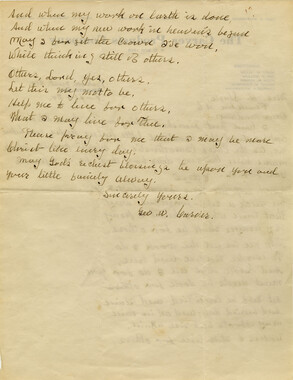 And when my work on Earth is done,
And when my new work in heaven's begun
May I forget the Crown I've won,
While thinking still of others.
Others, Lord, yes, others.
Let this my motto be.
Help me to live for others,
That I may live for Thee.
Please pray for me that I may be more
Christ like every day.
May God's richest blessings be upon you and
your little family always.
Sincerely yours.
Geo. W. Carver.